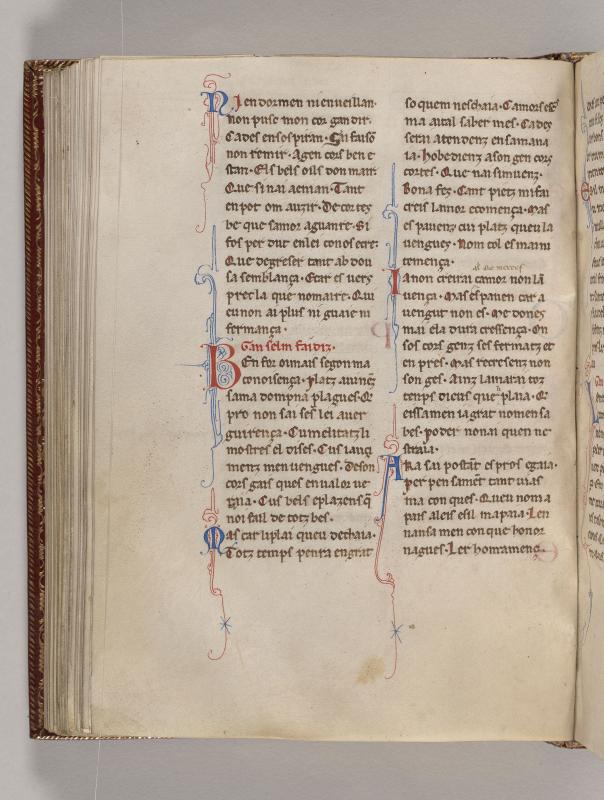 Ni en dormen meravellan.
non puse mon cor gandir.
Cades en sospiran. En faisō
non remir. Agen cors ben e
stan. Els bels oils don mair.
Que si nai aenian. Tant
en pot om auzir. De cortes
be que samor aguante. Si
fos per dut enlei conoscere:
Que degreser tant ab dou
sa semblança. Ecar es uers
prec la que nomaire. Qui
eu non ai plus ni guaie ni
fermança.
Gan selm faidiz.
BEn for oimais segon ma
conoisença. Platz auinēz
sama dompna plagues. Q
pro non sai ses lei auer
guirença. Cumelitatz li
mostres el dises. Cus iauci
menz men uengues. De son
cors gais ques en ualor ue
raia. Cus bels eplazens q̄
noi faill de totz bes.
Mas car liplai queu dechaia.
Totz temps penra en grat
so quem neschaia. Camors es
ma aital saber mes. Cades
serai atendenz en samana
ia. hobedienz a son gen cors
cortes. Que nai simuenz.
Bona fez. Cant pietz mi fai
creis lamor ecomença. Mas
es pauenz cui platz queu la
uengues. Nom col es mai ni
temença.
al que merces
Ia non creirai camor non lā
uença. Mas espauen car a
uengut non es. Me dones
mai ela dura cressença. On
sos cors genz ses fermatz et
en pres. Mas recresenz non
son ges. Ainz lamarai toz
temps dieus que plaia. E
eissamen iagrat nomen sa
bes. poder non ai quen ne
straia.
Ara sui postatz es pros egaia.
per pen samēt tant uias
ma con ques. Queu nom a
pais aleis esil mapaia. Len
nansa men con que honor
nagues. Ler homramenz.